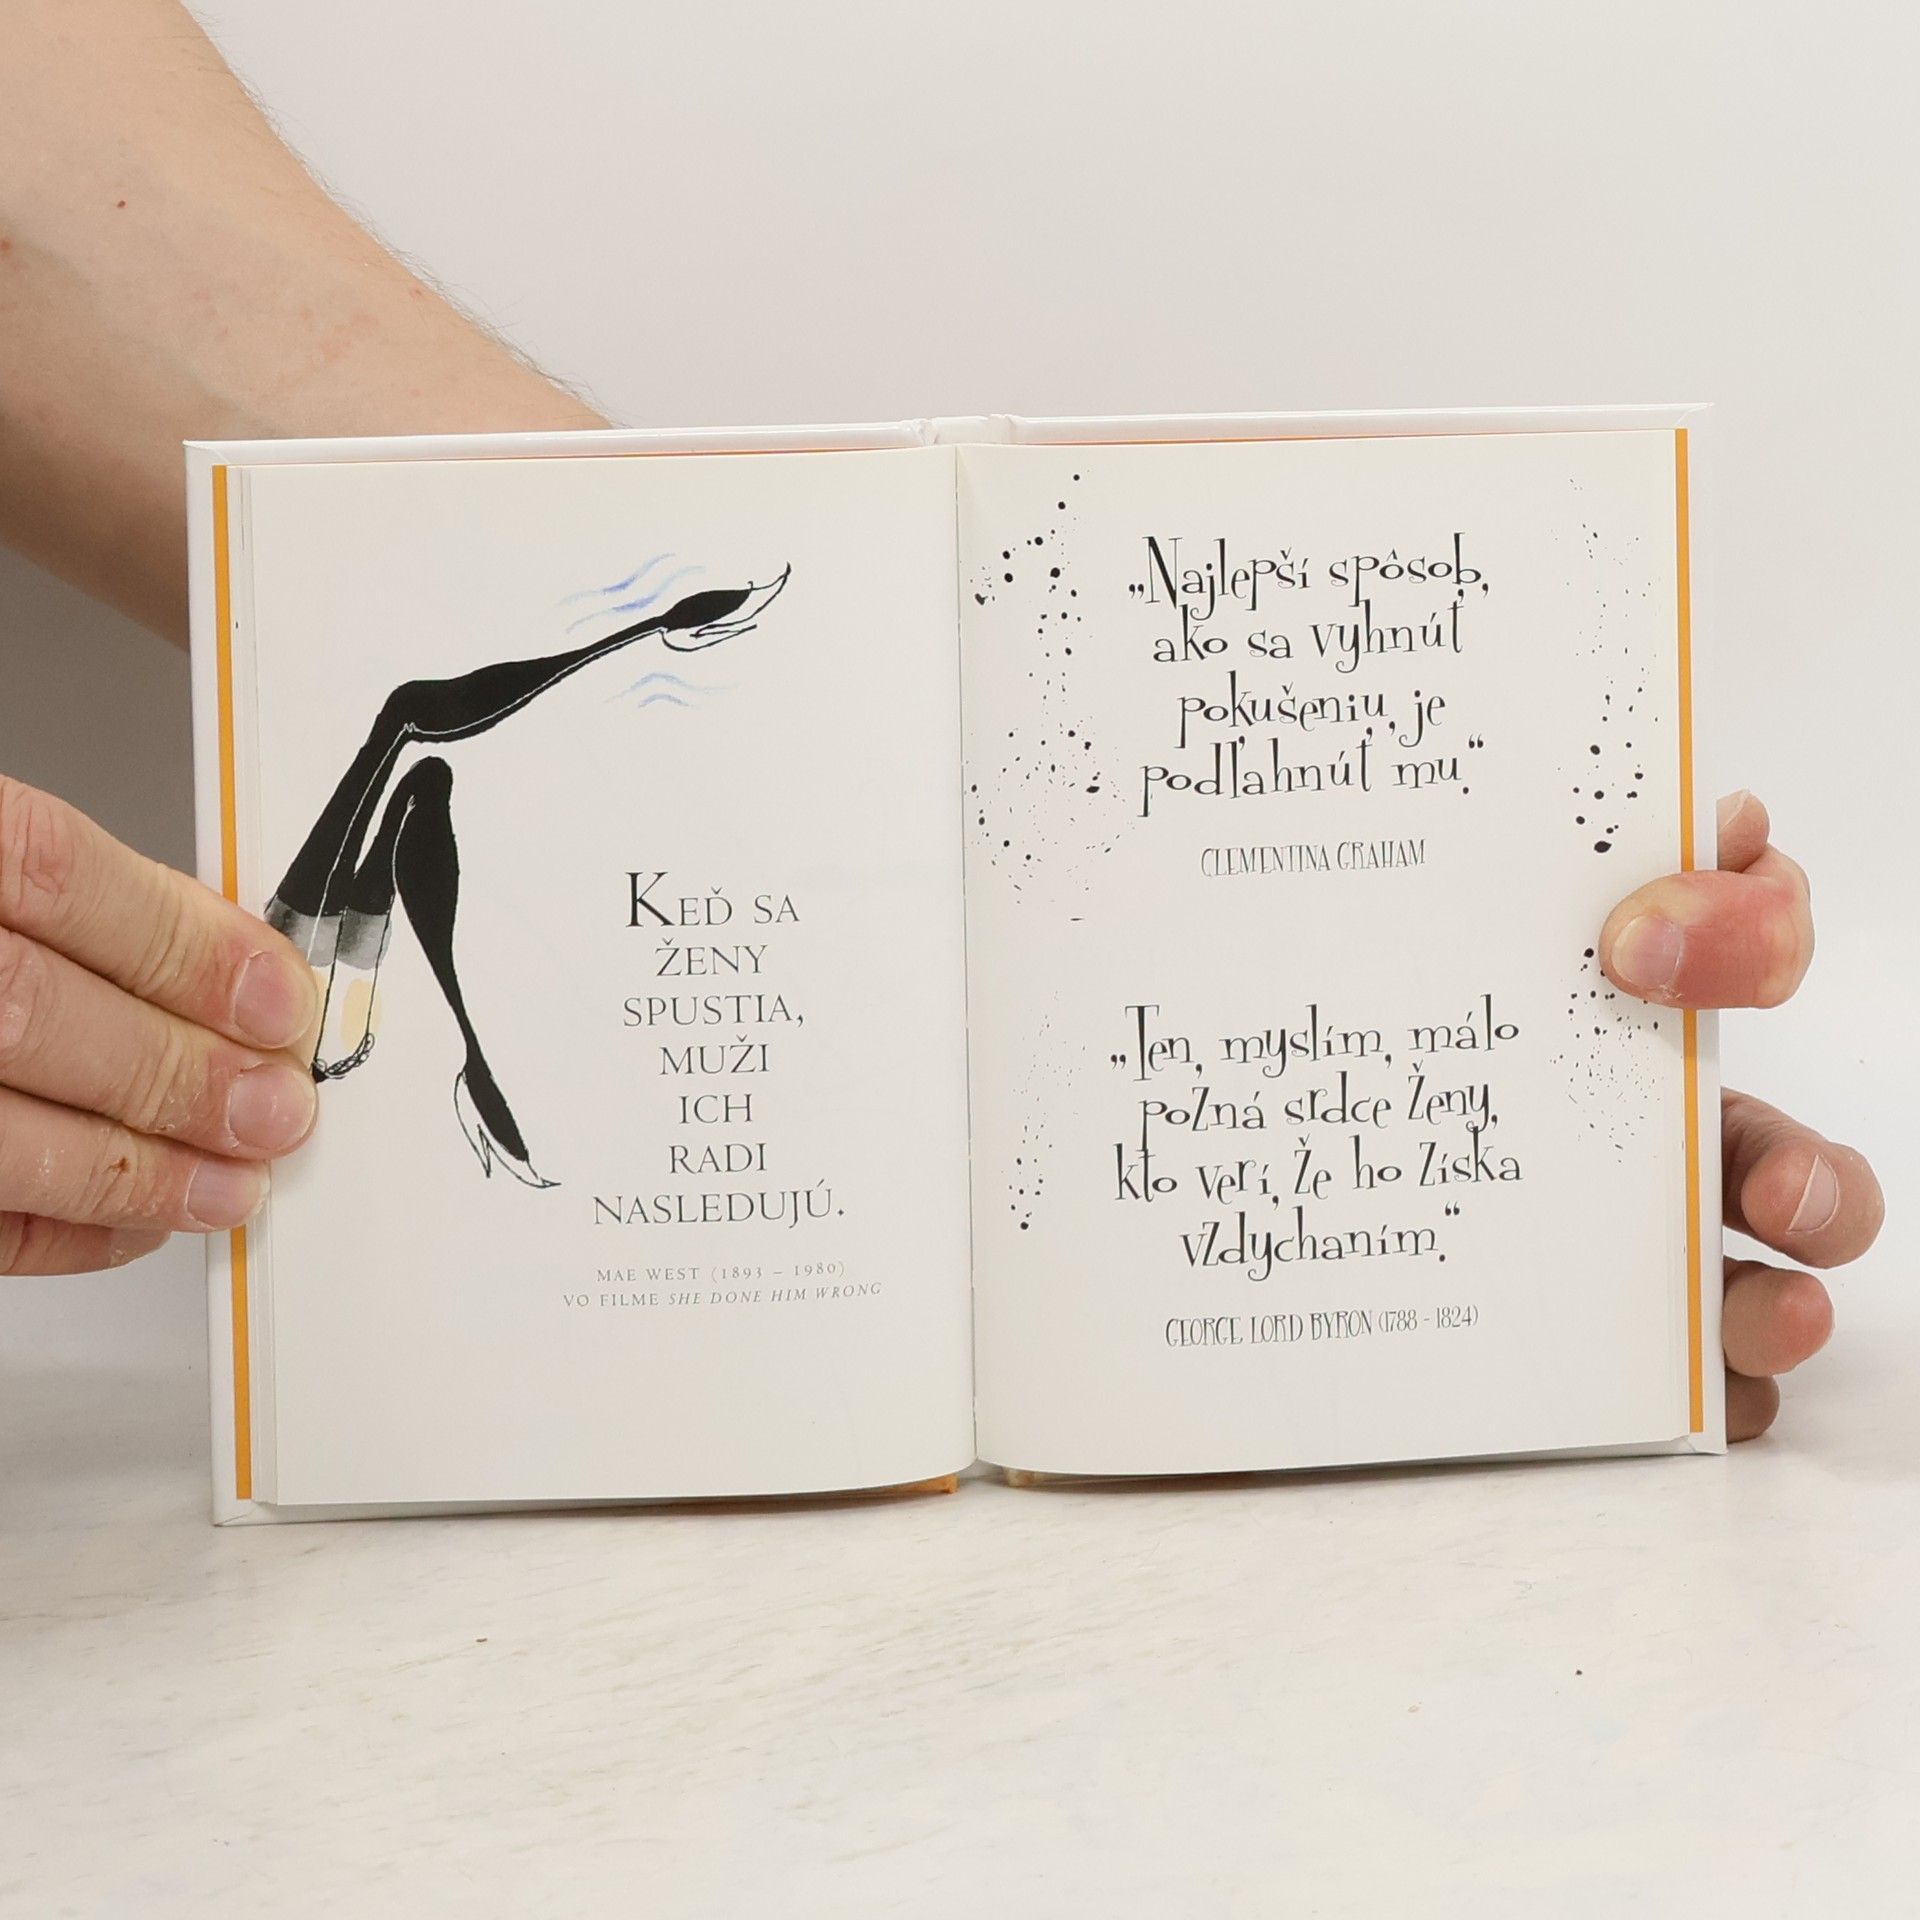 Keď sa
ženy
spustia,
muži
ich
radi
nasledujú.
MAE WEST (1893 – 1980)
VO FILME SHE DONE HIM WRONG
„Najlepší spôsob,
ako sa vyhnúť
pokušeniu, je
podľahnúť mu.“
CLEMENTINA GRAHAM
„Ten, myslím, málo
pozná srdce ženy,
kto verí, že ho získa
vzdychaním.“
GEORGE LORD BYRON (1788 - 1824)